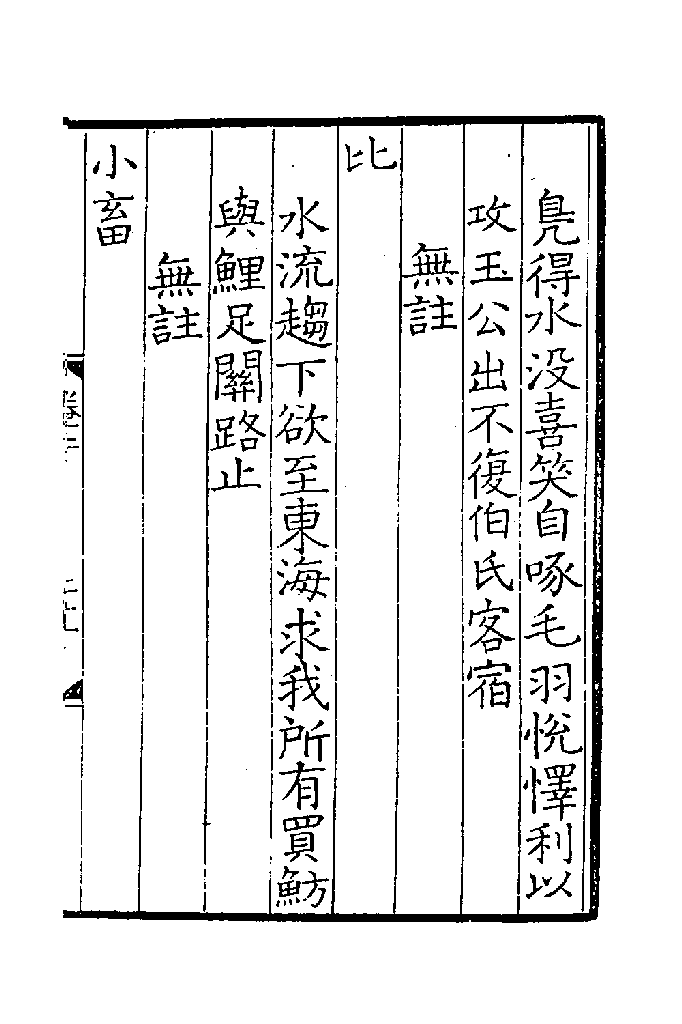 鳧得水没喜笑自啄毛羽悅懌利以
攻玉公出不復伯氏客宿
無註
比
水流趨下欲至東海求我所有買魴
與鯉足關路止
無註
小畜